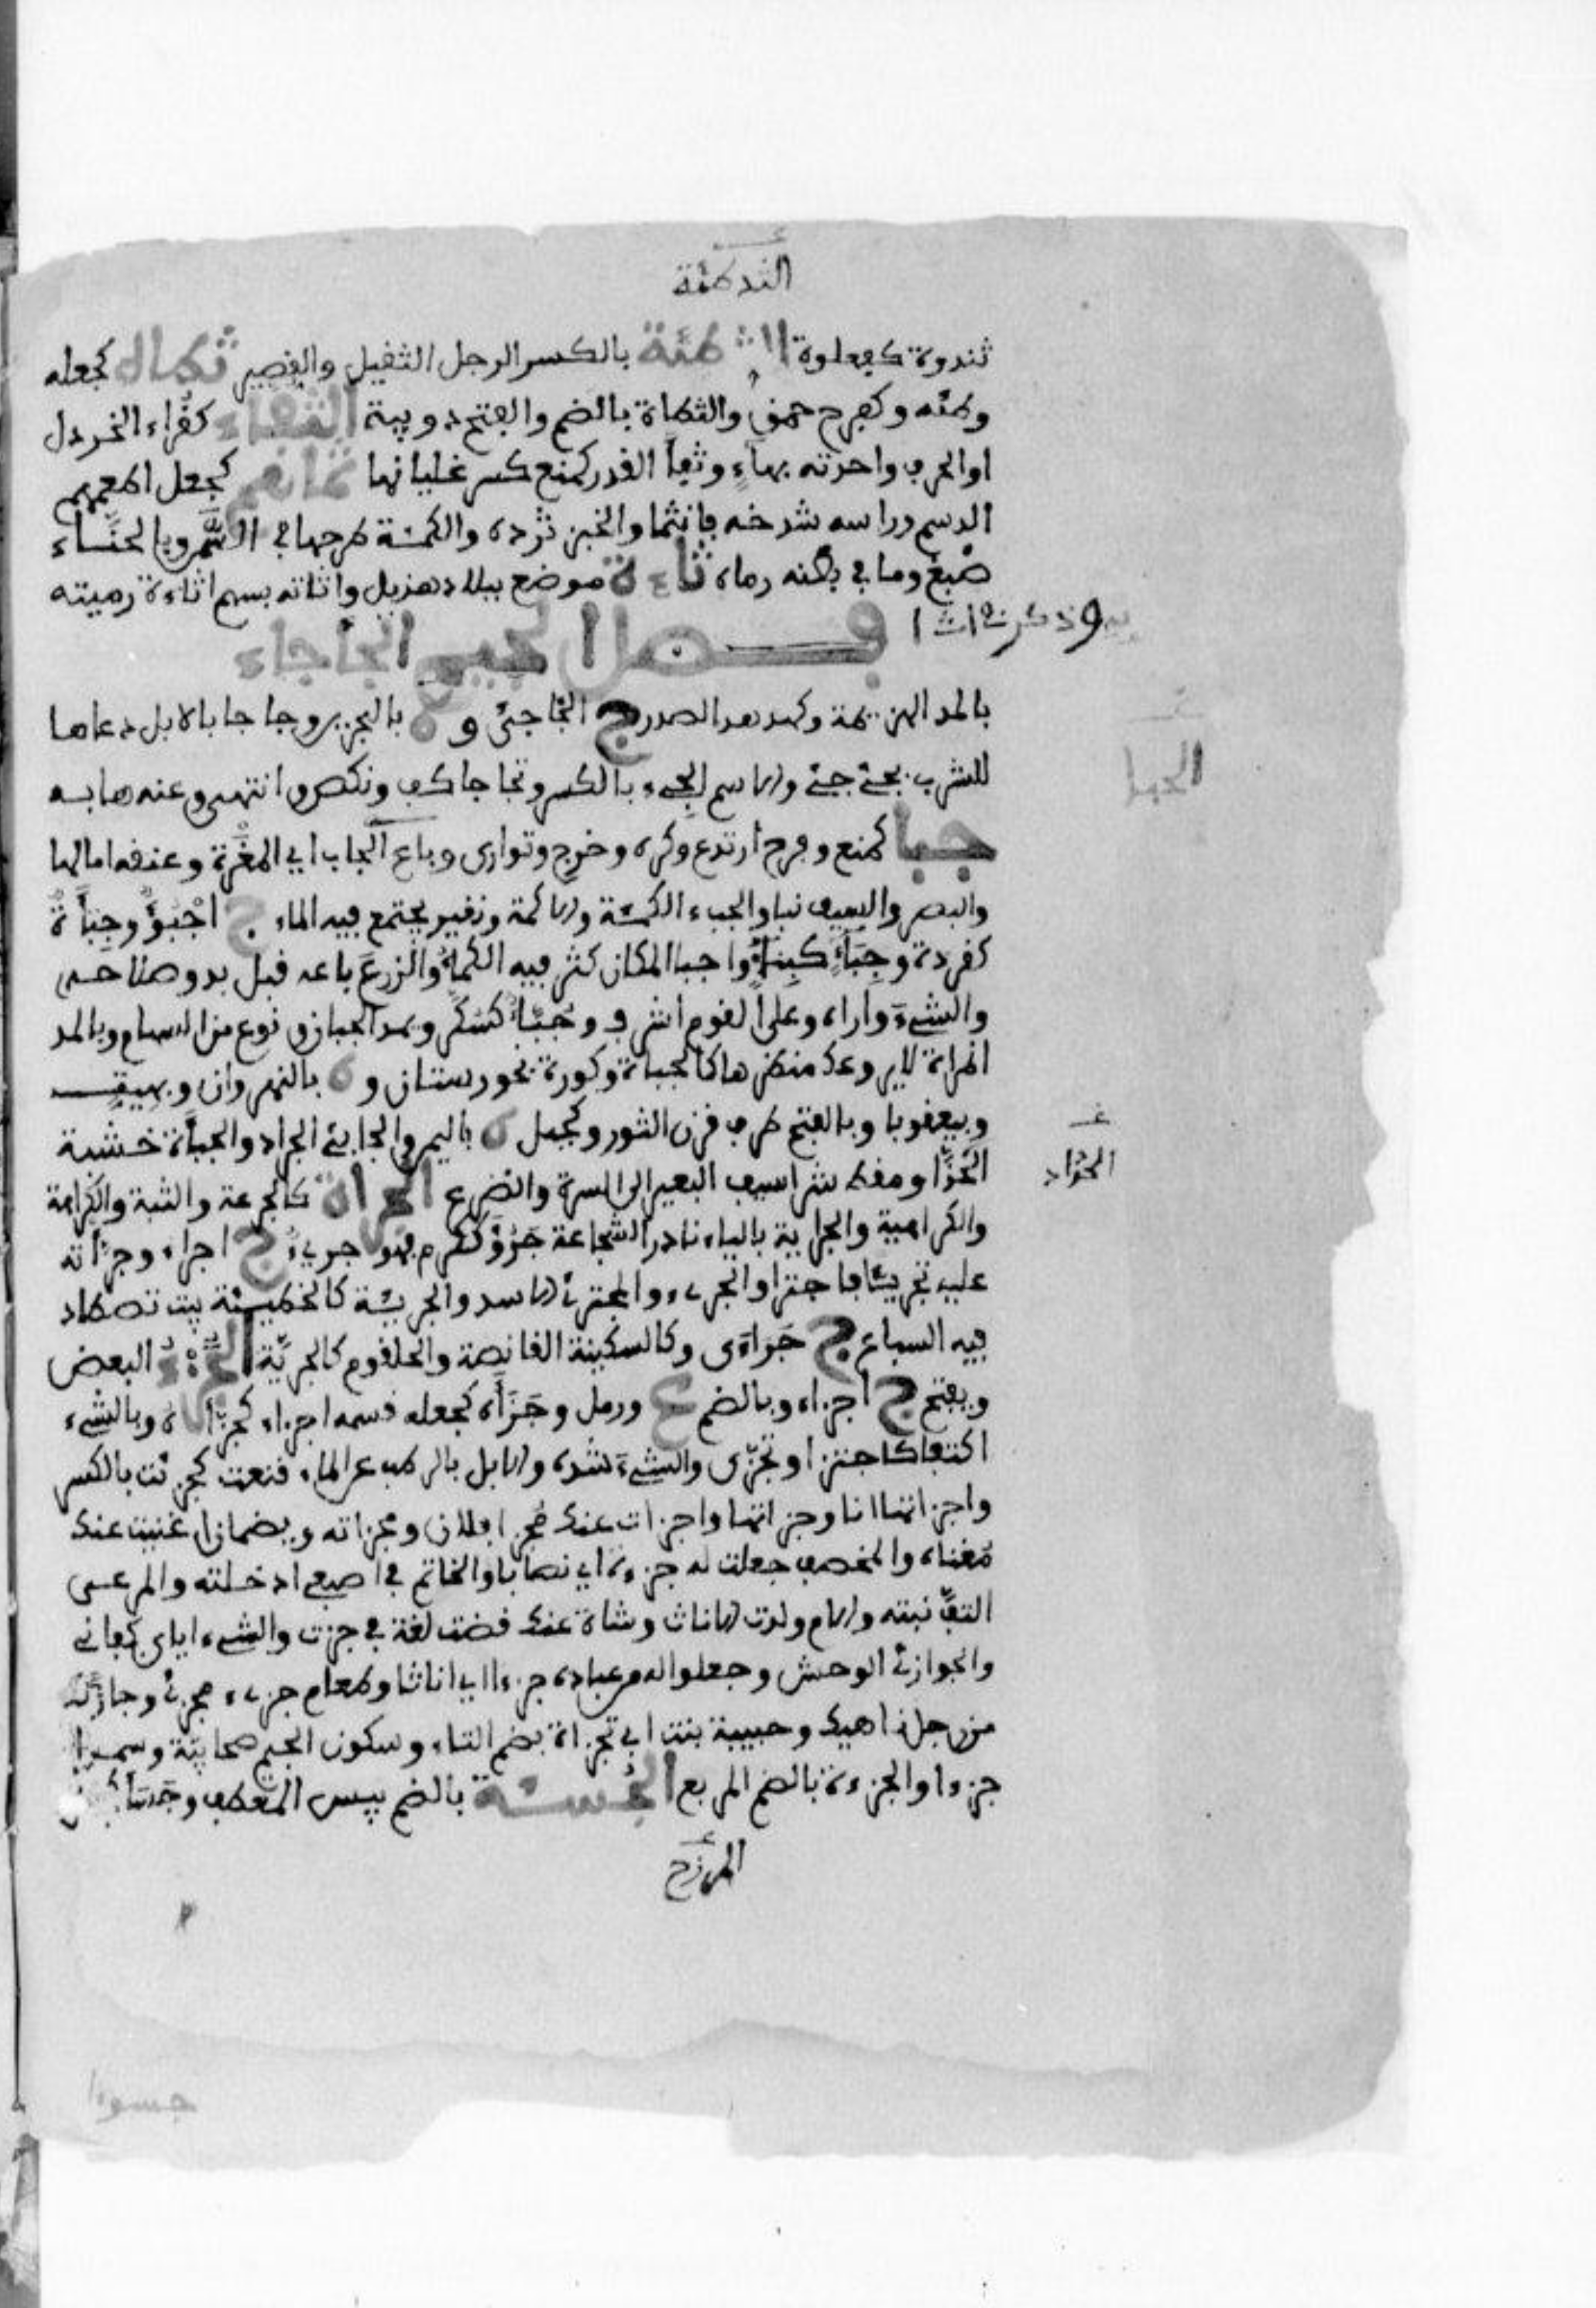 الثدطئة
ثندوة كفعلوة الثرطئة بالكسر الرجل الثقيل والقصير ثطأه كجعله
وطئه وكفرح حمق والثطاة بالضم والفتح دويبة الثفاء كقراء الخردل
او الحرف واحدته بهاء وثفأ القدر كمنع كسر غليانها ثمأهم كجعل اطعمهم
الدسم وراسه شدخه فانثما والخبز ثرده والكمئة طرحها في السمن وبالحناء
صبغ وما في بطنه رماه ثاءة موضع ببلاد هذيل واثاته بسهم اثاءة رميته
وذكر في اث ا
فصل الجيم الجاجاء
بالمد الهزيمة وكهدهد الصدر ج الجاجئ و ة بالبحرين وجاجا بالابل دعاها
للشرب بجئ جئ والاسم الجيء بالكسر وتجاجا كف ونكص وانتهى وعنه هابه
الجبا
جبا كمنع وفرح ارتدع وكره وخرج وتوارى وباع الجاب اي المغرة وعنقه امالها
والبصر والسيف نبا والجبء الكمئة والاكمة ونقير يجتمع فيه الماء ج اجبؤ وجبأة
كقردة وجبأ كنبأ واجبا المكان كثر فيه الكمأ والزرع باعه قبل بدو صلاحه
والشيء واراه وعلى القوم اشرف وجبأ كسكر ويمد الجبان ونوع من السهام وبالمد
المراة لا يروعك منظرها كالجباة وكورة بخوزستان و ة بالنهروان وبهيت
وبيعقوبا وبالفتح طرف قرن الثور وكجبل ة باليمن والجابئ الجراد والجبأة خشبة
الحذاء
الحذا ومقط شراسيف البعير الى السرة والضرع الجرأة كالجرعة والثبة والكراهة
والكراهية والجراية بالياء نادر الشجاعة جرؤ ككرم فهو جريء ج اجراء وجرأته
عليه تجريئا فاجترا والجريء والمجترئ الاسد والجريئة كالخطيئة بيت تصطاد
فيه السباع ج جراءى وكالسكينة القانصة والحلقوم كالجرية الجزء البعض
ويفتح ج اجزاء وبالضم ع ورمل وجزأه كجعله قسمه اجزاء كجزأه وبالشيء
اكتفى كاجتزا وتجزى والشيء شده والابل بالرطب عن الماء قنعت كجزئت بالكسر
واجزاتها انا وجزاتها واجزات عنك مجزا فلان ومجزاته ويضمان اغنيت عنك
مغناه والمخصف جعلت له جزءة اي نصابا والخاتم في اصبعي ادخلته والمرعى
التف نبته والام ولدت الاناث وشاة عنك قضت لغة في جزت والشيء اياي كفاني
والجوازئ الوحش وجعلوا له من عباده جزءا اي اناثا وطعام جزيء مجزئ وجازئك
من رجل ناهيك وحبيبة بنت ابي تجراة بضم التاء وسكون الجيم صحابية وسموا
جزءا والجزءة بالضم المربع الجسئة بالضم يبس المعطف وجسأ
المرزح
جسوءا